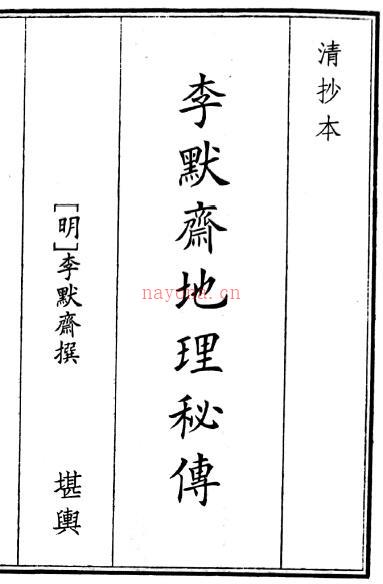 清抄本
李默齋地理秘傳
[明]李默齋撰
堪輿
nayona.cn